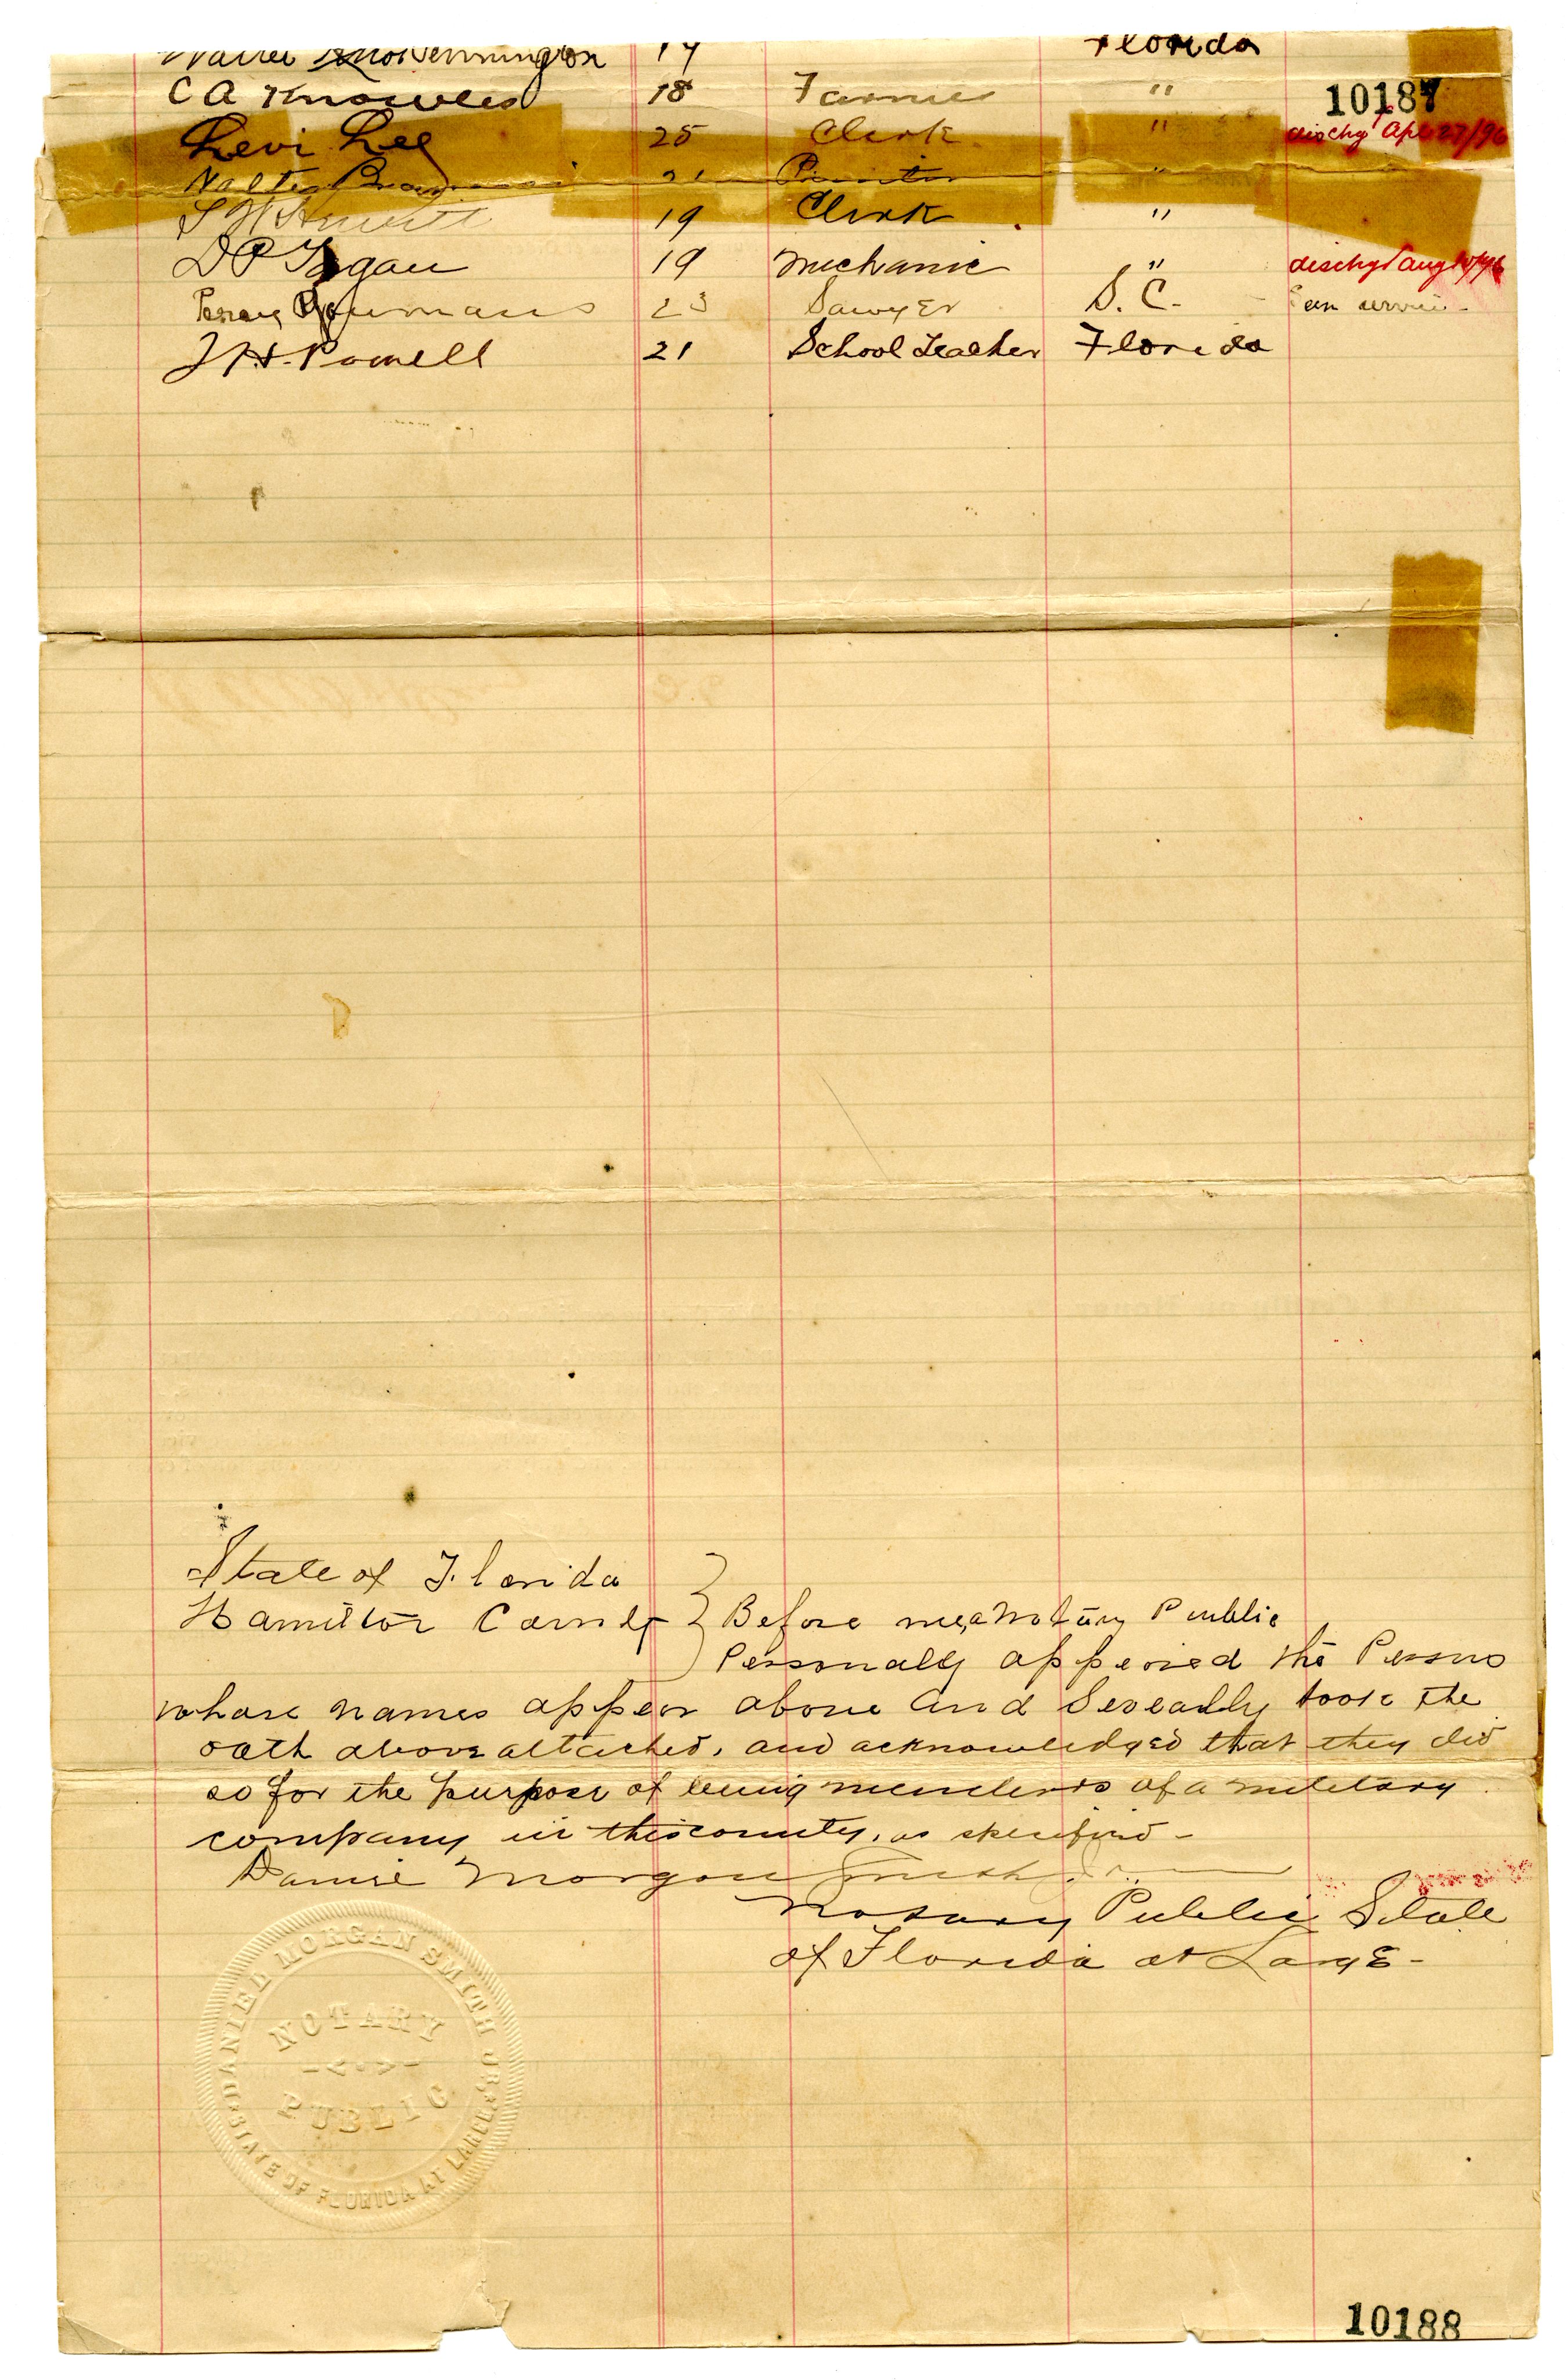 Florida
C A Knowles 18 Farmer " 10187
Levi Lee 25 Clerk " dischgd Apl 27/96
Walter 21 Printer "
S W 19 Clerk "
D P 19 mechanic " dischgd aug 10/96
Perry 23 Sawyer S. C.
J H. Powell 21 School Teacher Florida
State of Florida
Hamilton County } Before me, a Notary Public
Personally appeared the Persons
whose names appear above and Severally took the
oath above attached, and acknowledged that they did
so for the purpose of being members of a military
company in this county, as specified -
Daniel Morgan Smith Jr.
Notary Public State
of Florida at Large -
DANIEL MORGAN SMITH JR.
NOTARY
PUBLIC
STATE OF FLORIDA AT LARGE
10188